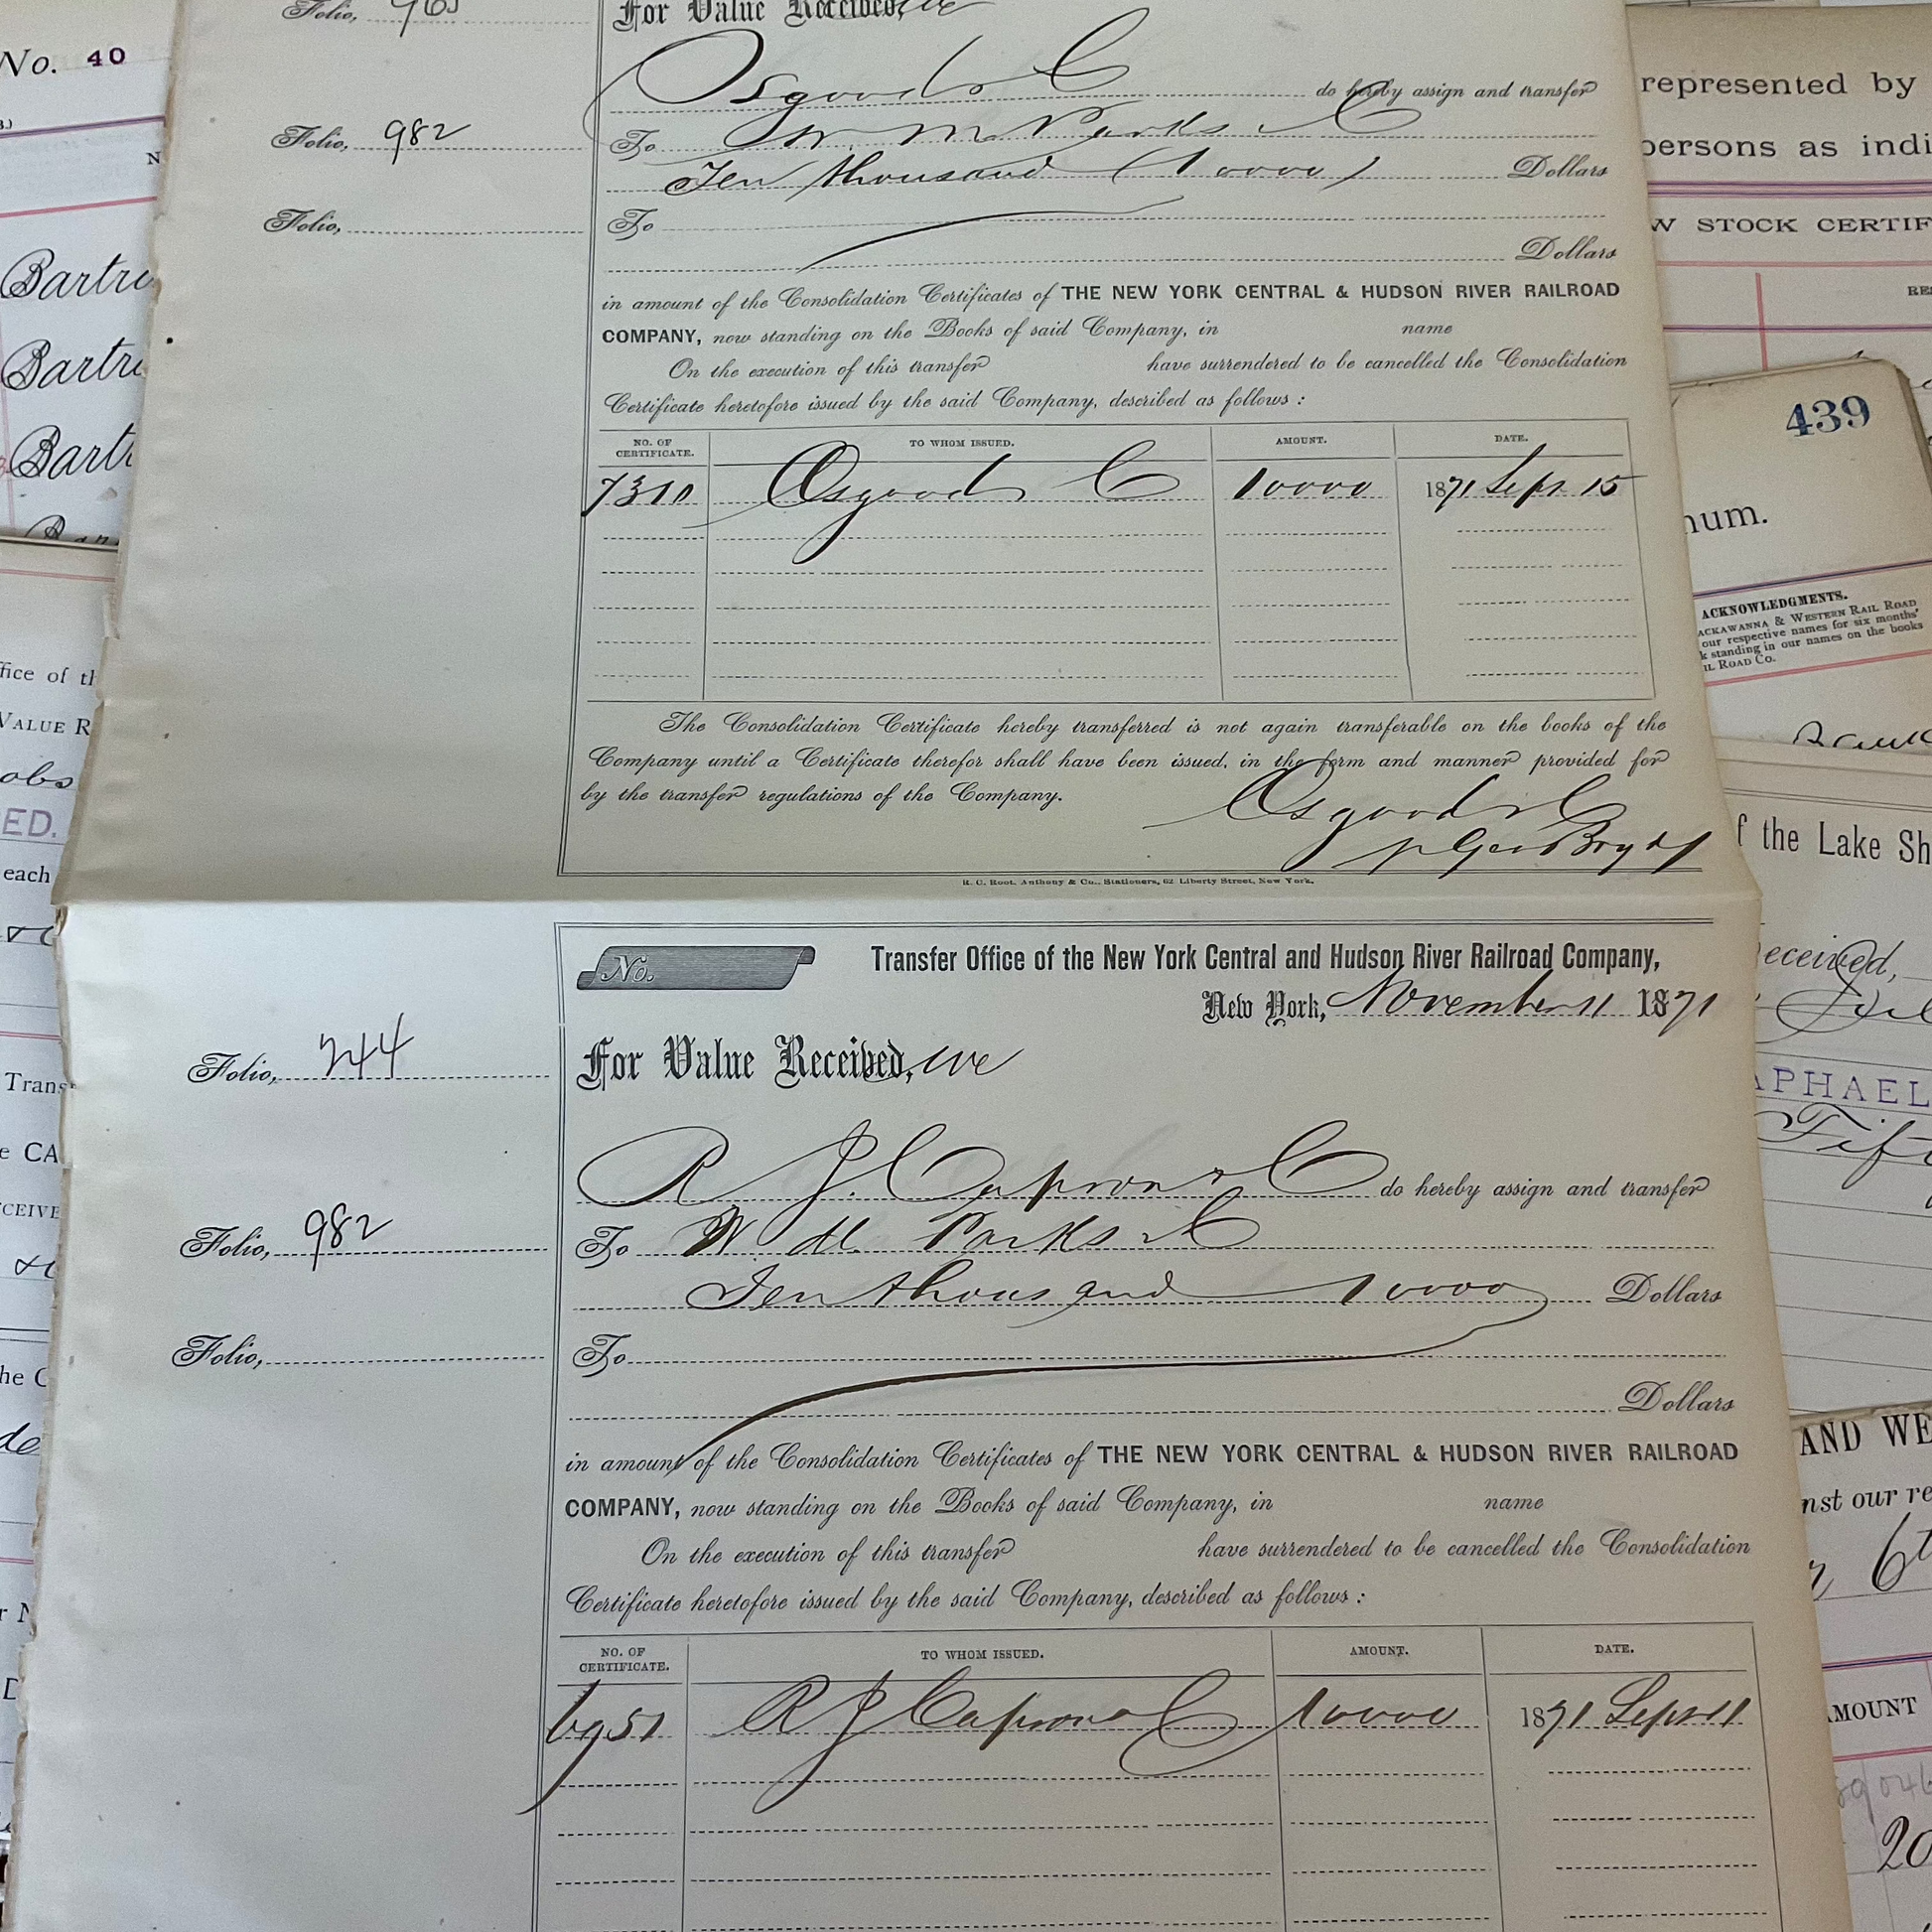 Folio, 963
For Value Received, we
Osgood & C
do hereby assign and transfer
Folio, 982
To W. M. Parks & C
Ten thousand (10000) Dollars
Folio,
To
Dollars
in amount of the Consolidation Certificates of THE NEW YORK CENTRAL & HUDSON RIVER RAILROAD
COMPANY, now standing on the Books of said Company, in name
On the execution of this transfer have surrendered to be cancelled the Consolidation
Certificate heretofore issued by the said Company, described as follows :
NO. OF CERTIFICATE. TO WHOM ISSUED. AMOUNT. DATE.
7310 Osgood & C 10000 1871 Sept 15
The Consolidation Certificate hereby transferred is not again transferable on the books of the
Company until a Certificate therefor shall have been issued, in the form and manner provided for
by the transfer regulations of the Company.
Osgood & C
R. C. Root, Anthony & Co., Stationers, 62 Liberty Street, New York.
No.
Transfer Office of the New York Central and Hudson River Railroad Company,
New York, November 11 1871
Folio, 244
For Value Received, we
R J. Capron & C do hereby assign and transfer
Folio, 982
To W. M. Parks & C
Ten thousand 10000 Dollars
Folio,
To
Dollars
in amount of the Consolidation Certificates of THE NEW YORK CENTRAL & HUDSON RIVER RAILROAD
COMPANY, now standing on the Books of said Company, in name
On the execution of this transfer have surrendered to be cancelled the Consolidation
Certificate heretofore issued by the said Company, described as follows :
NO. OF CERTIFICATE. TO WHOM ISSUED. AMOUNT. DATE.
6951 R J Capron & C 10000 1871 Sept 11
No. 40
Bartr
Bartr
Bartr
ffice of th
VALUE R
obs
ED.
each
Trans
e CA
CEIVE
the C
represented by
persons as indi
W STOCK CERTIF
439
num.
ACKNOWLEDGMENTS.
ACKAWANNA & WESTERN RAIL ROAD
our respective names for six months'
k standing in our names on the books
IL ROAD CO.
f the Lake Sh
eceived,
APHAEL
Fift
AND WE
nst our re
6t
AMOUNT
20